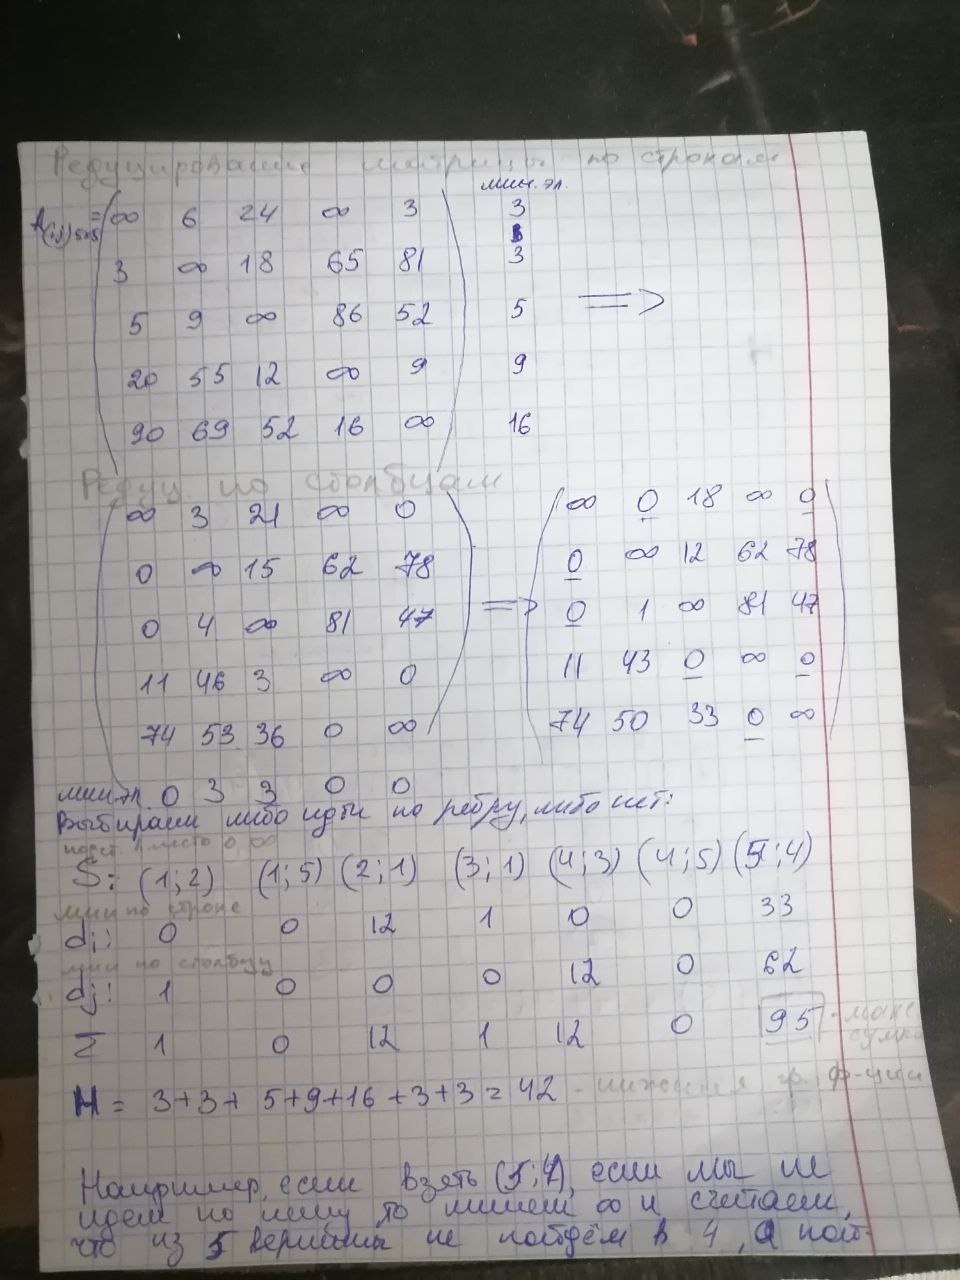 Редуцирование матрицы по строкам
мин. эл.
A(i,j)5x5 = ∞ 6 24 ∞ 3 3
3 ∞ 18 65 81 3
5 9 ∞ 86 52 5 =>
20 55 12 ∞ 9 9
90 69 52 16 ∞ 16
Редуц. по столбцам
∞ 3 21 ∞ 0
0 ∞ 15 62 78
0 4 ∞ 81 47 =>
11 46 3 ∞ 0
74 53 36 0 ∞
мин эл. 0 3 3 0 0
∞ 0 18 ∞ 0
0 ∞ 12 62 78
0 1 ∞ 81 47
11 43 0 ∞ 0
74 50 33 0 ∞
Выбираем либо идти по ребру, либо нет:
подст. вместо 0 ∞
S: (1;2) (1;5) (2;1) (3;1) (4;3) (4;5) (5;4)
мин по строке
di: 0 0 12 1 0 0 33
мин по столбцу
dj: 1 0 0 0 12 0 62
Σ 1 0 12 1 12 0 95 - макс
сумма
H = 3+3+ 5+9+16 +3+3 = 42 - нижняя гр. ф-ции
Например, если взять (5;4), если мы не
идем по нему, то пишем ∞ и считаем,
что из 5 вершины не пойдём в 4, а пой-